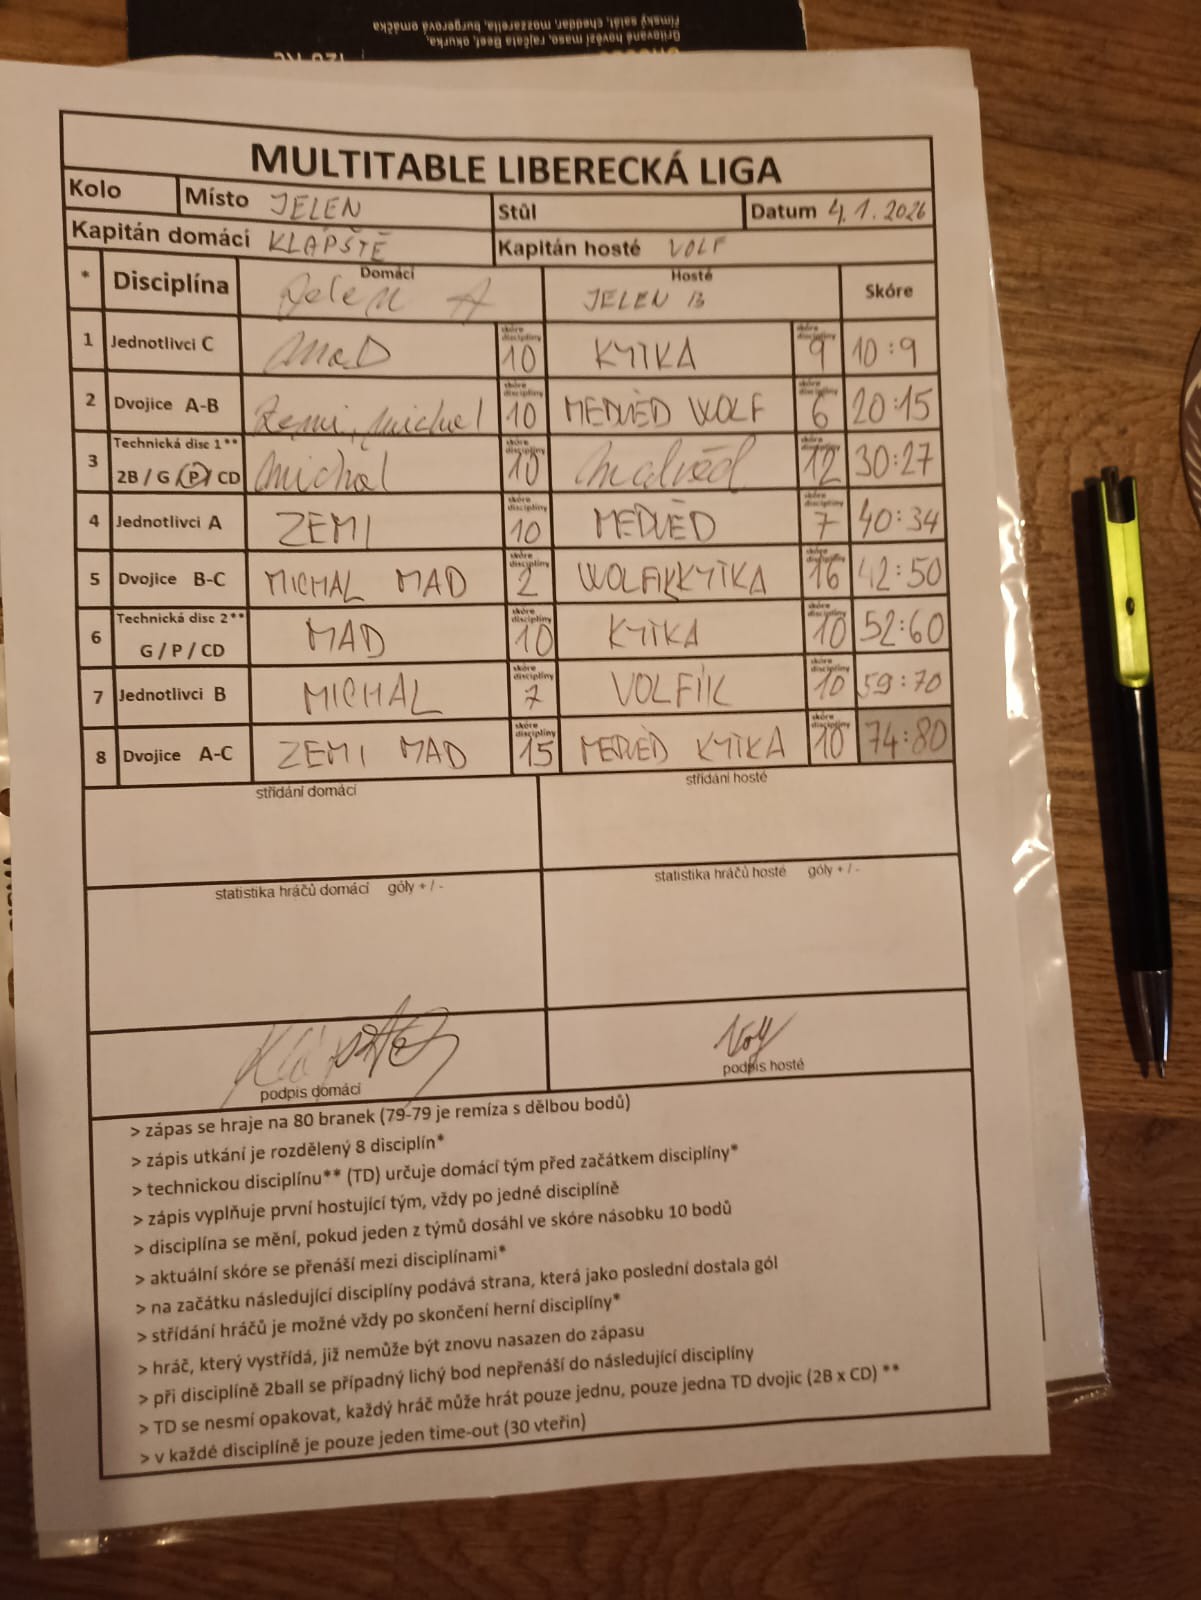 římský salát, cheddar, mozzarella, burgerová omáčka
Grilované hovězí maso, rajčata Beef, okurka,
MULTITABLE LIBERECKÁ LIGA
Kolo Místo JELEN Stůl Datum 4.1.2026
Kapitán domácí KLÁPŠTĚ Kapitán hosté VOLF
* Disciplína Domácí Jelen A Hosté JELEN B Skóre
1 Jednotlivci C MaD skóre disciplíny 10 KYTKA skóre disciplíny 9 10:9
2 Dvojice A-B Zemi, michal skóre disciplíny 10 MEDVĚD WOLF skóre disciplíny 6 20:15
3 Technická disc 1** 2B / G / P / CD Michal skóre disciplíny 10 Medvěd skóre disciplíny 12 30:27
4 Jednotlivci A ZEMI skóre disciplíny 10 MEDVĚD skóre disciplíny 7 40:34
5 Dvojice B-C MICHAL MAD skóre disciplíny 2 WOLFIK KYTKA skóre disciplíny 16 42:50
6 Technická disc 2** G / P / CD MAD skóre disciplíny 10 KYTKA skóre disciplíny 10 52:60
7 Jednotlivci B MICHAL skóre disciplíny 7 VOLFÍK skóre disciplíny 10 59:70
8 Dvojice A-C ZEMI MAD skóre disciplíny 15 MEDVĚD KYTKA skóre disciplíny 10 74:80
střídání domácí střídání hosté
statistika hráčů domácí góly + / - statistika hráčů hosté góly + / -
podpis domácí podpis hosté
> zápas se hraje na 80 branek (79-79 je remíza s dělbou bodů)
> zápis utkání je rozdělený 8 disciplín*
> technickou disciplínu** (TD) určuje domácí tým před začátkem disciplíny*
> zápis vyplňuje první hostující tým, vždy po jedné disciplíně
> disciplína se mění, pokud jeden z týmů dosáhl ve skóre násobku 10 bodů
> aktuální skóre se přenáší mezi disciplínami*
> na začátku následující disciplíny podává strana, která jako poslední dostala gól
> střídání hráčů je možné vždy po skončení herní disciplíny*
> hráč, který vystřídá, již nemůže být znovu nasazen do zápasu
> při disciplíně 2ball se případný lichý bod nepřenáší do následující disciplíny
> TD se nesmí opakovat, každý hráč může hrát pouze jednu, pouze jedna TD dvojic (2B x CD) **
> v každé disciplíně je pouze jeden time-out (30 vteřin)